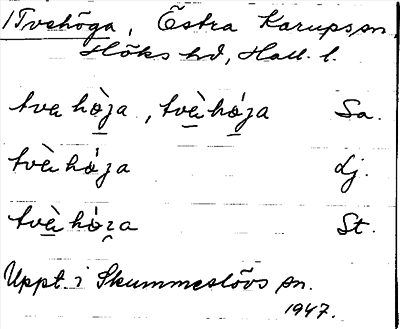 1 Tvehöga, Östra Karups sn
Höks hd, Hall. l.
tve hòja, tvèhója Sa.
tvèhója dj.
tvèhóza St.
Uppt. i Skummeslövs sn.
1947.